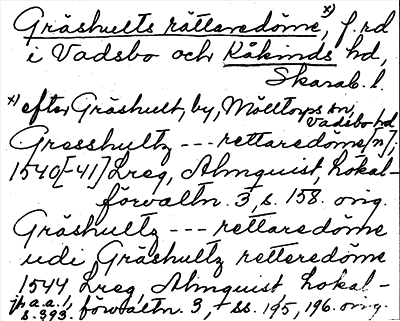 Gräshults rättaredöme x), f. rd
i Vadsbo och Kåkinds hd,
Skarab. l.
x) efter Gräshult, by, Mölltorps sn,
Vadsbo hd
Gresshultz --- rettaredöme[n];
1540[-41] Lreg, Almquist, Lokal-
förvaltn. 3, s. 158. orig.
Gräshultz --- rettaredöme
udi Gräshultz retteredöme
1544 Lreg, Almquist, Lokal-
jfr a.a. 1, förvaltn. 3, ss. 195, 196. orig.
s. 393.